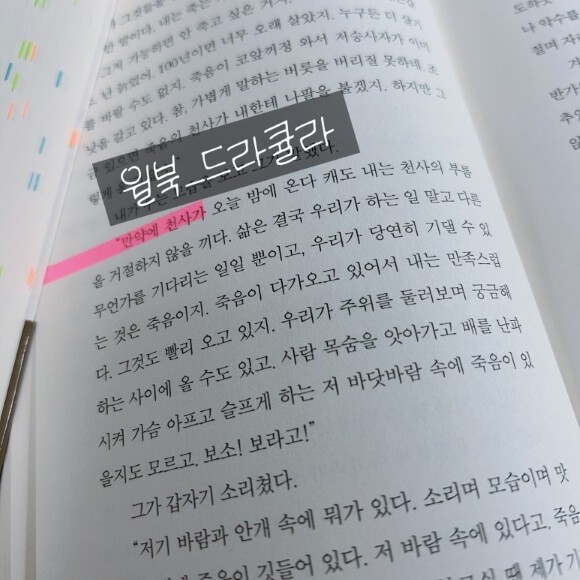 럼 말이다. 내는 죽은
그게 가능하면 안 죽고 싶은 거지. 누구든 더 살기
난 늙었어. 100년이면 너무 오래 살았지.
를 바랄 수도 없지. 죽음이 코앞꺼정 와서 저승사자가 이미
낫을 갈고 있다. 참, 가볍게 말하는 버릇을 버리질 못하네. 조
있으면 죽음의 천사가 내한테 나팔을 불겠지. 하지만 그
윌북_드라큘라
“만약에 천사가 오늘 밤에 온다 캐도 내는 천사의 부름
을 거절하지 않을 끼다. 삶은 결국 우리가 하는 일 말고 다른
무언가를 기다리는 일일 뿐이고, 우리가 당연히 기댈 수 있
는 것은 죽음이지. 죽음이 다가오고 있어서 내는 만족스럽
다. 그것도 빨리 오고 있지. 우리가 주위를 둘러보며 궁금해
하는 사이에 올 수도 있고. 사람 목숨을 앗아가고 배를 난파
시켜 가슴 아프고 슬프게 하는 저 바닷바람 속에 죽음이 있
을지도 모르고. 보소! 보라고!”
그가 갑자기 소리쳤다.
“저기 바람과 안개 속에 뭐가 있다. 소리며 모습이며 맛
죽음이 깃들어 있다. 저 바람 속에 있다고, 죽음
때 제가 기
도하듯
나 악수를
절며 자리
반가
추억
없는